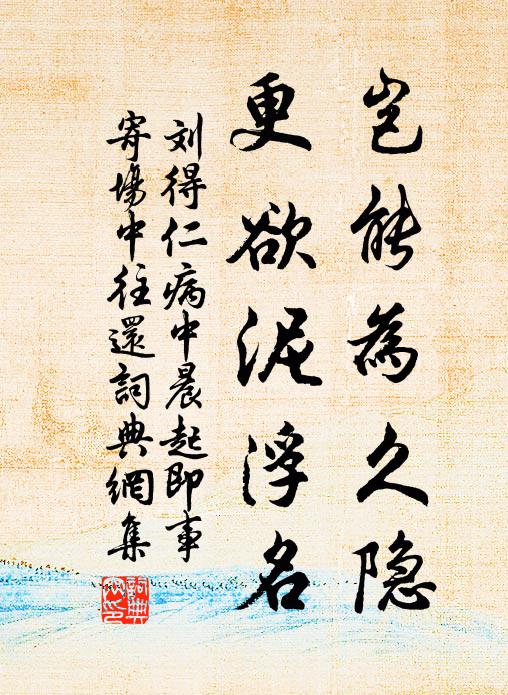 岂能为久隐
更欲泥浮名
刘得仁病中晨起即事
寄場中往還詞典網集